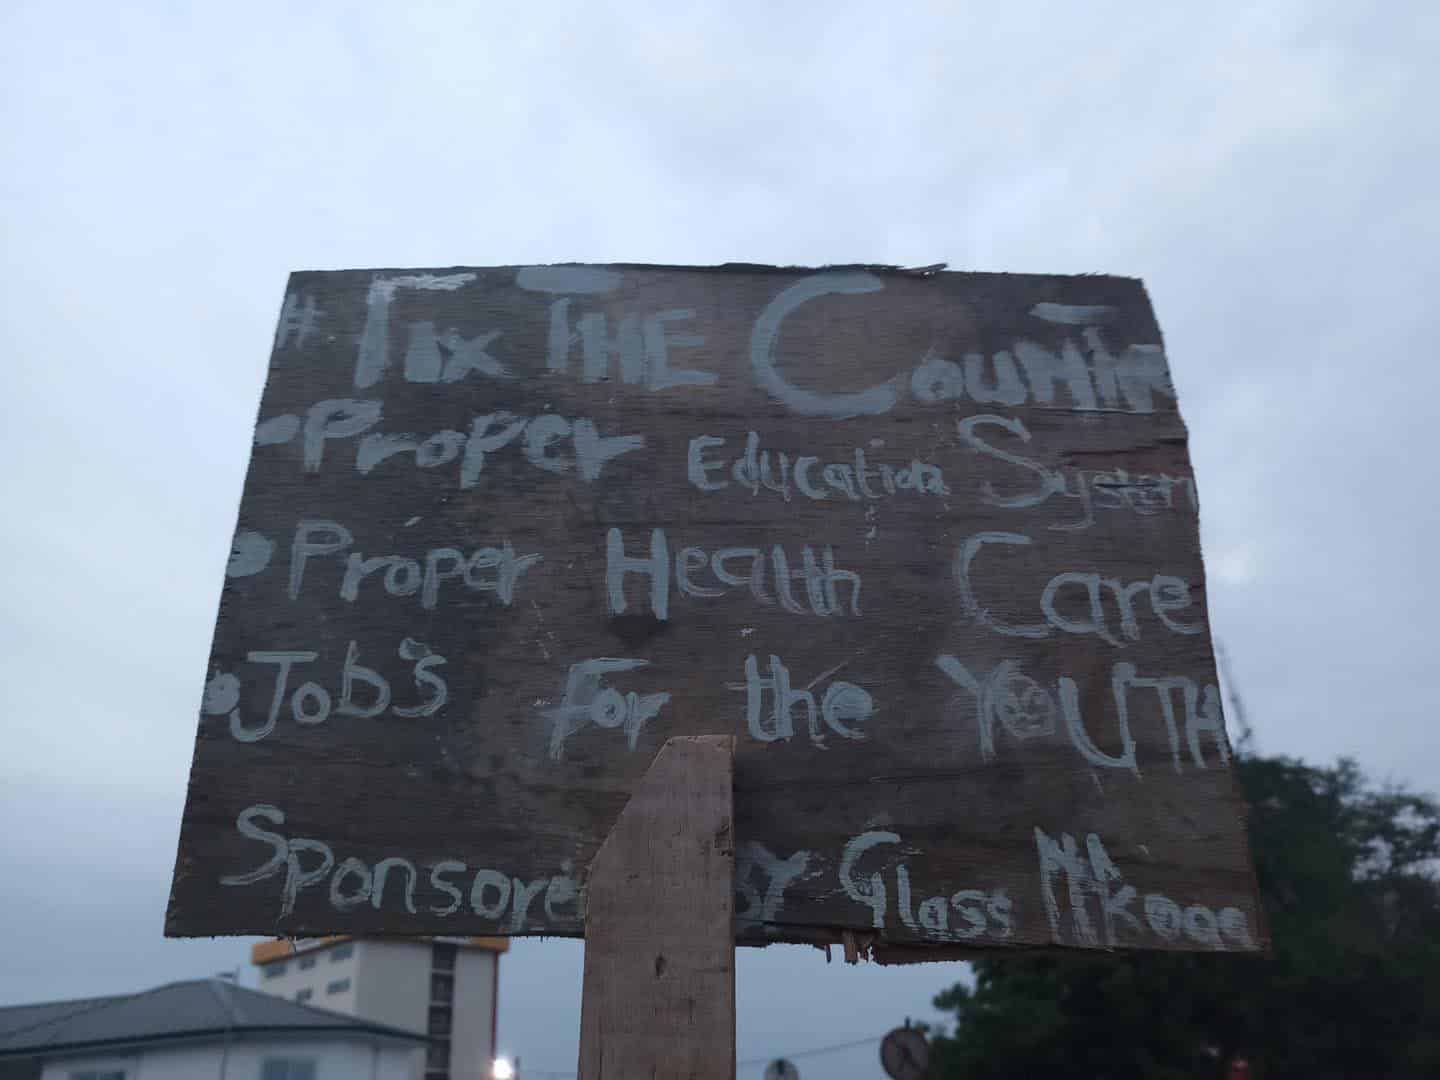 # FIX THE
• Proper Education System
• Proper Health Care
• Job's For the YOUTH
Sponsored By Glass